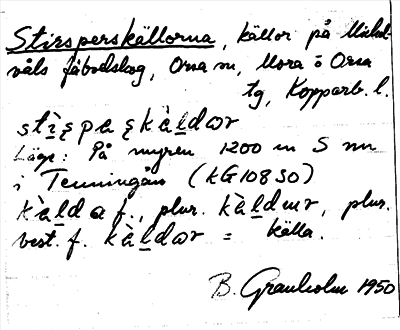 Stirsperskällorna, källor på Mickel-
våls fäbodskog, Orsa sn, Mora o Orsa
tg, Kopparb. l.
Läge: På myren 1200 m S om
i Tenningån (kG 108 SO)
kàlda f., plur. kàldur, plur.
best. f. kàldor = källa.
B. Granholm 1950